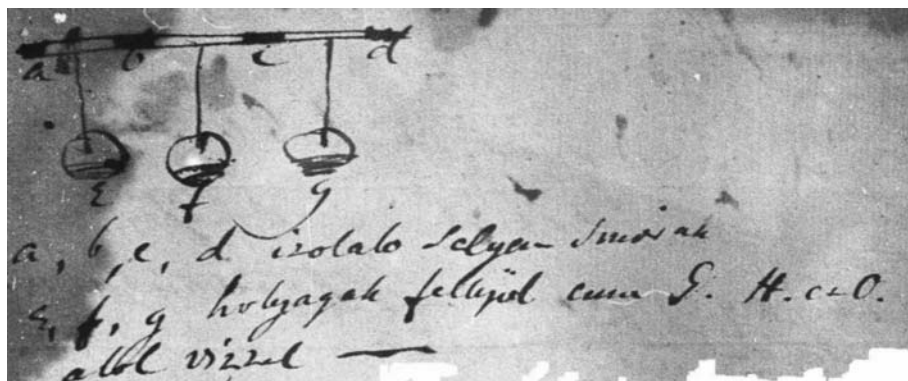 a b c d
ε f g
a, b, c, d izolalo selyem sinorak
ε, f, g holyagak fellyül cum G. H. et O.
allol vizzel —